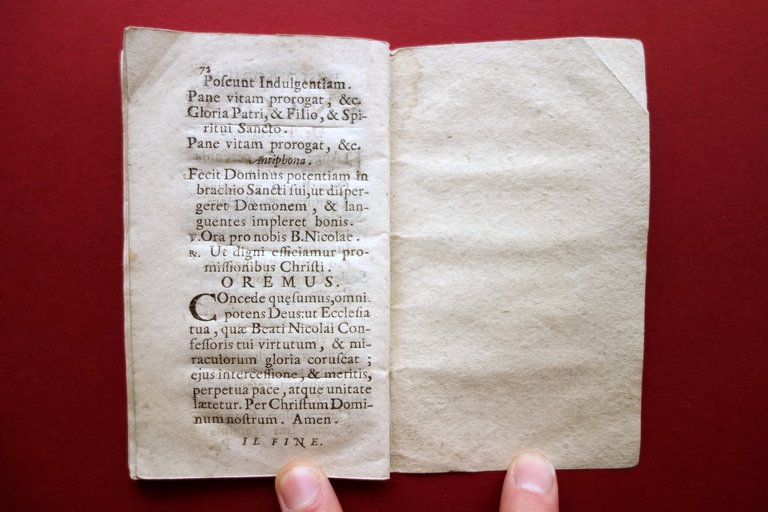 72
Poſcunt Indulgentiam.
Pane vitam prorogat, &c.
Gloria Patri, & Filio, & Spi-
ritui Sancto.
Pane vitam prorogat, &c.
Antiphona.
Fecit Dominus potentiam in
brachio Sancti ſui, ut diſper-
geret Dœmonem, & lan-
guentes impleret bonis.
℣. Ora pro nobis B. Nicolae.
℟. Ut digni efficiamur pro-
miſſionibus Chriſti.
OREMUS.
COncede quęſumus, omni-
potens Deus: ut Eccleſia
tua, quæ Beati Nicolai Con-
feſſoris tui virtutum, & mi-
raculorum gloria coruſcat;
ejus interceſſione, & meritis,
perpetua pace, atque unitate
lætetur. Per Chriſtum Domi-
num noſtrum. Amen.
IL FINE.